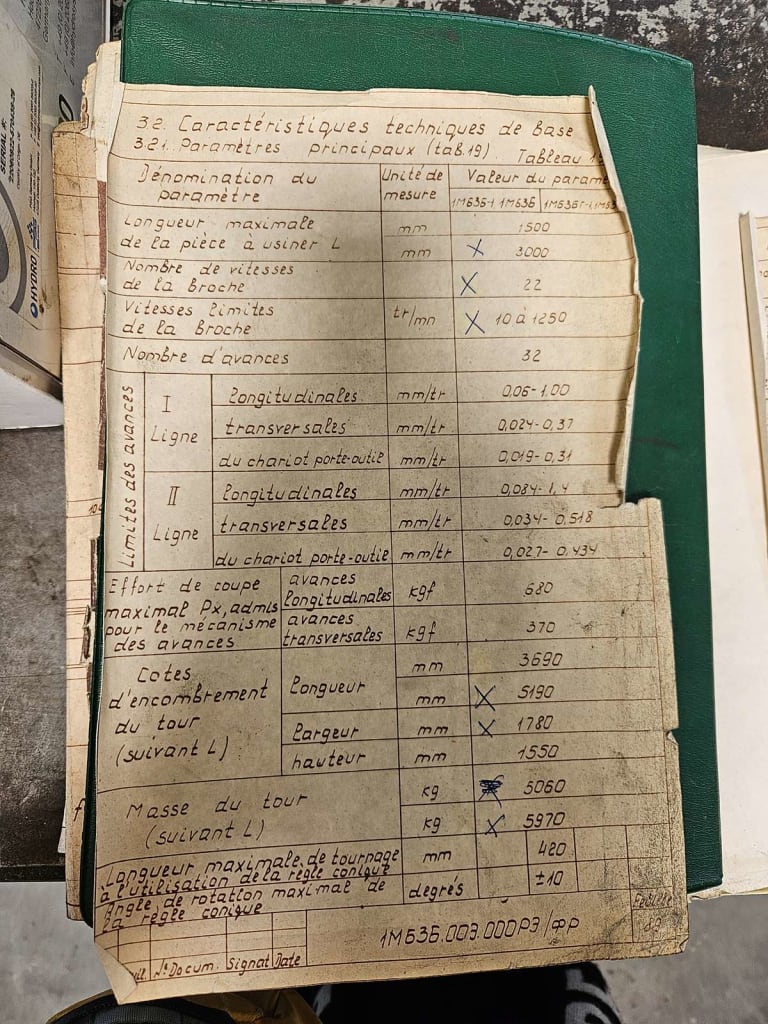 3.2. Caractéristiques techniques de base
3.2.1. Paramètres principaux (tab.19)
Tableau
Dénomination du paramètre
Unité de mesure
Valeur du
1М63Б-1 1М63Б
Longueur maximale
de la pièce à usiner L
mm 1500
mm X 3000
Nombre de vitesses
de la broche
X 22
Vitesses limites
de la broche
tr/mn X 10 à 1250
Nombre d'avances 32
Limites des avances
I Ligne
longitudinales mm/tr 0,06-1,00
transversales mm/tr 0,024-0,37
du chariot porte-outil mm/tr 0,019-0,31
II Ligne
longitudinales mm/tr 0,084-1,4
transversales mm/tr 0,034-0,518
du chariot porte-outil mm/tr 0,027-0,434
Effort de coupe
maximal Px, admis
pour le mécanisme
des avances
avances longitudinales kgf 680
avances transversales kgf 370
Cotes
d'encombrement
du tour
(suivant L)
longueur mm 3690
mm X 5190
largeur mm X 1780
hauteur mm 1550
Masse du tour
(suivant L)
kg 5060
kg X 5970
Longueur maximale de tournage
à l'utilisation de la règle conique
mm 420
Angle de rotation maximal de
la règle conique
degrés ±10
N° Docum. Signat Date
1М63Б.00Э.000РЭ/фр
SERIAL #:
HYDRO